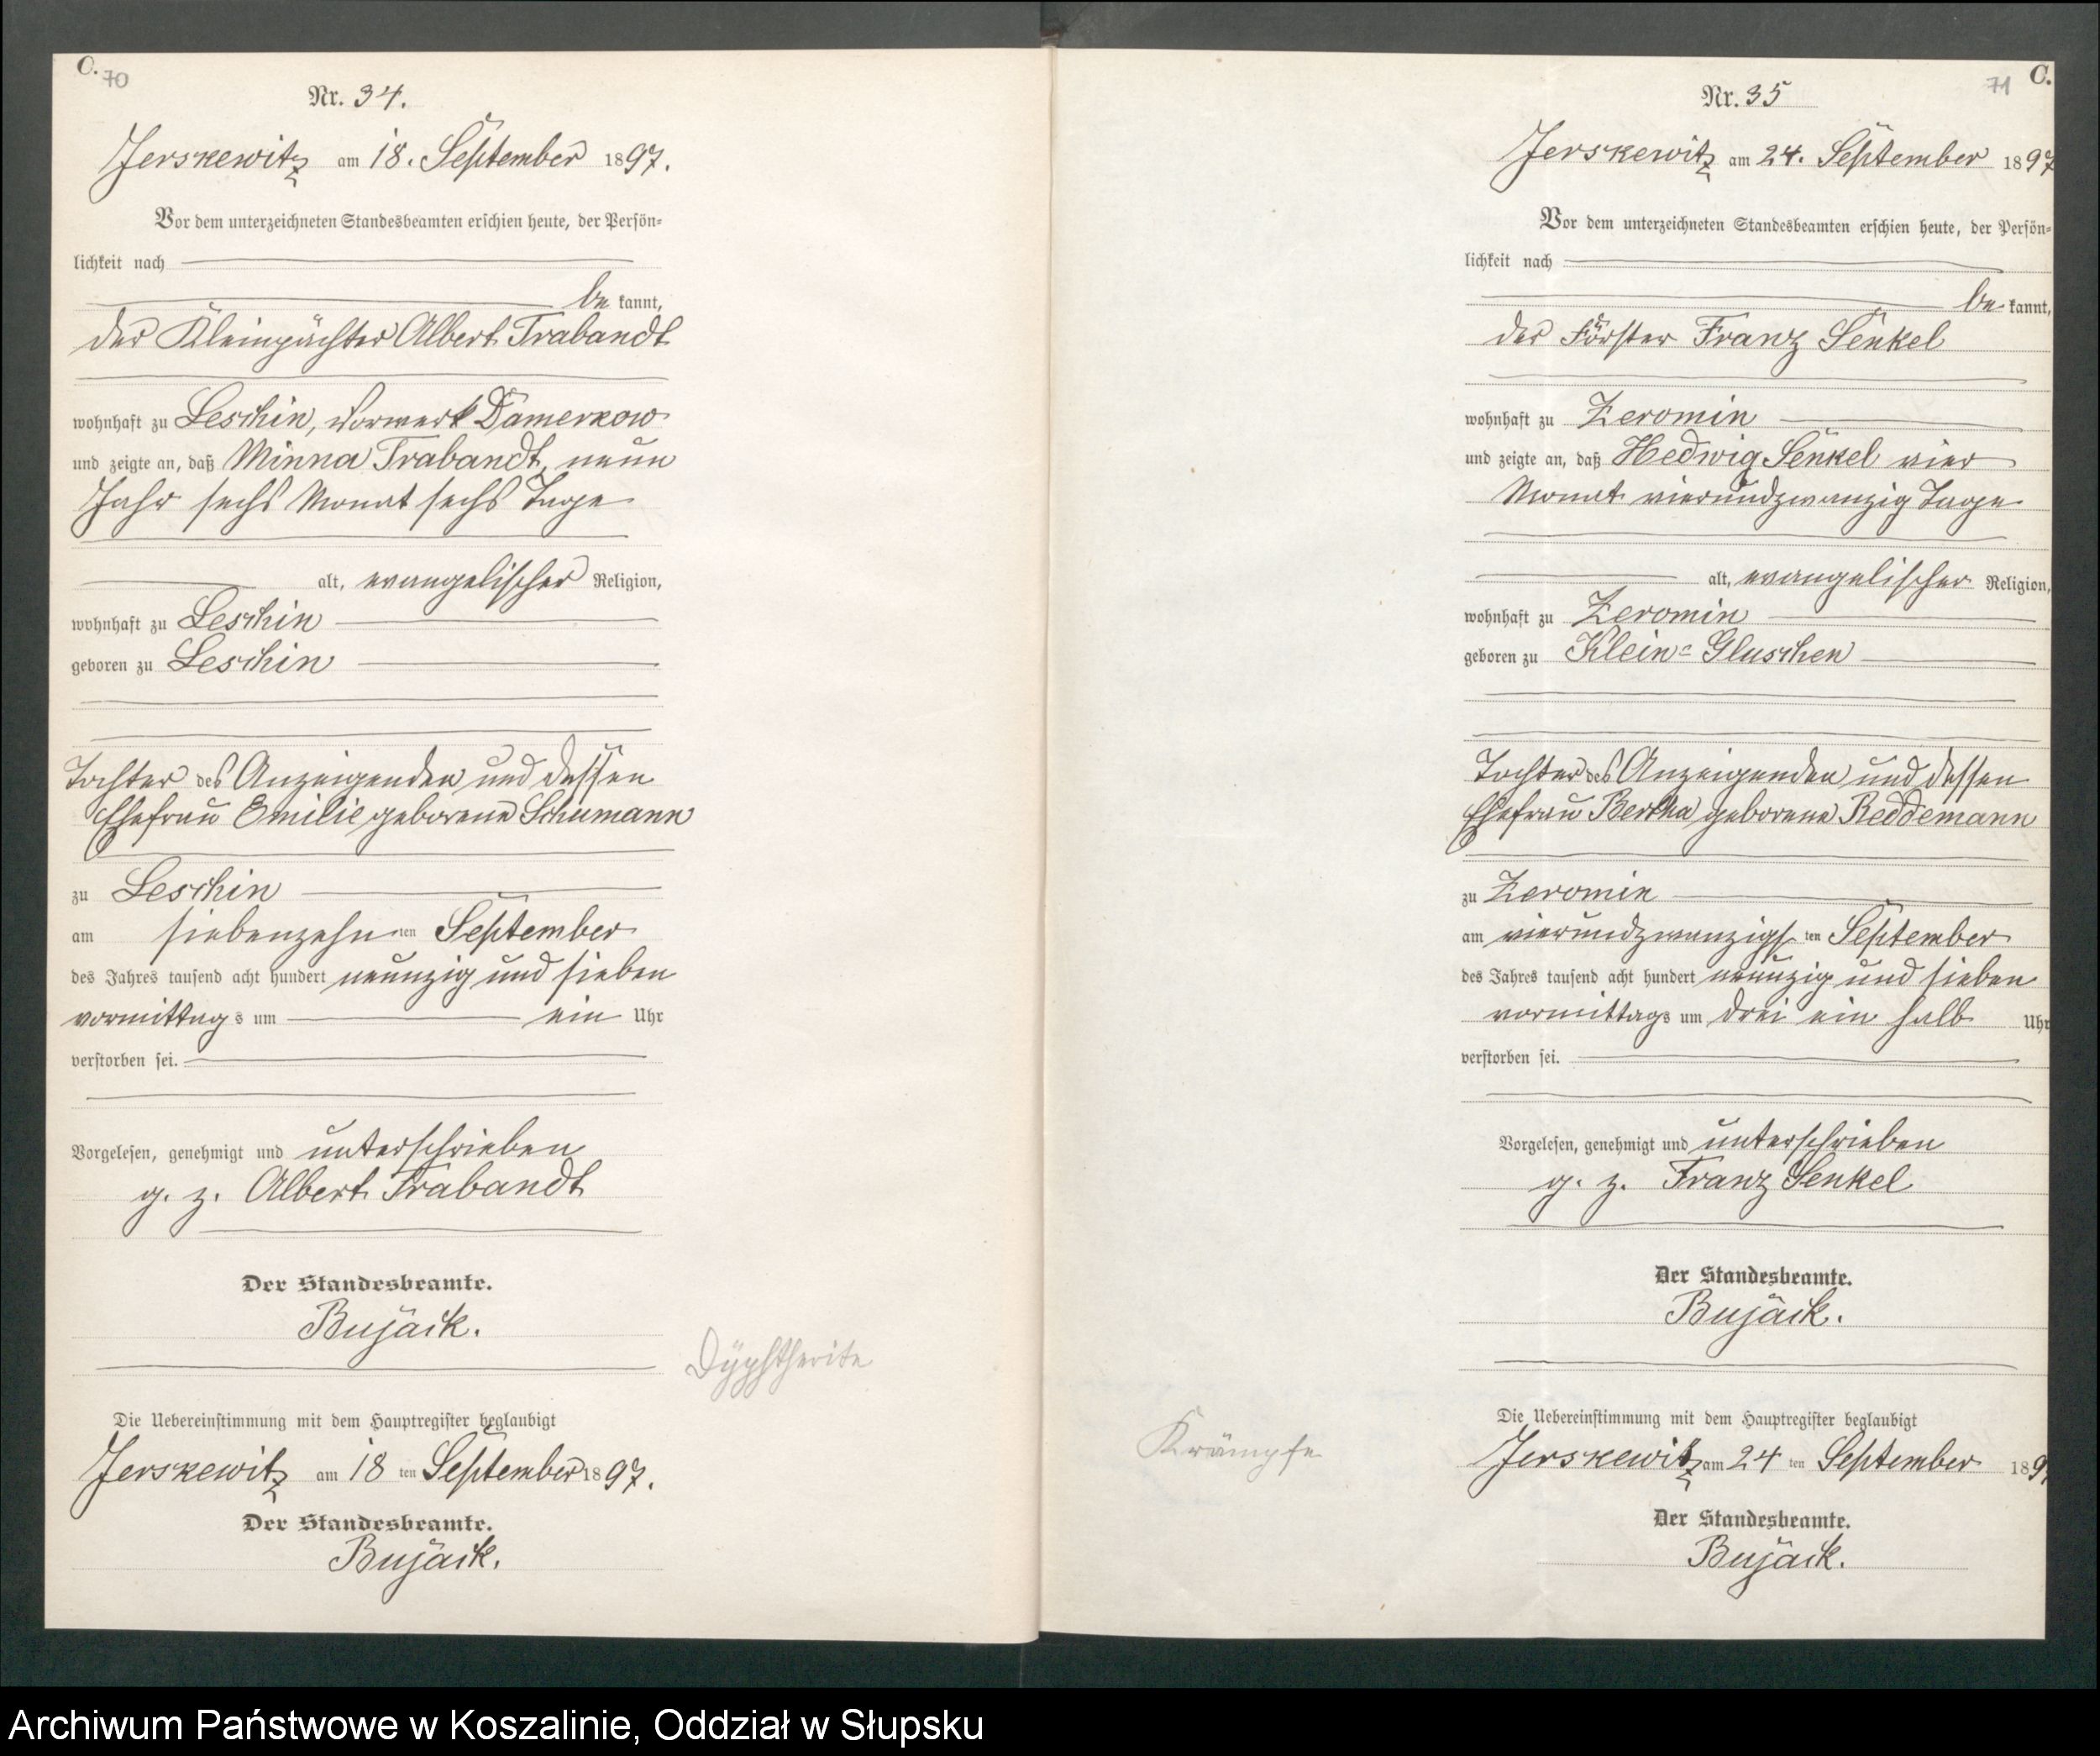 C. 70
Nr. 34.
Jerskewitz am 18. September 1897.
Vor dem unterzeichneten Standesbeamten erschien heute, der Persön-
lichkeit nach
be kannt,
der Kleinpächter Albert Trabandt
wohnhaft zu Leschin, Vorwerk Damerkow
und zeigte an, daß Minna Trabandt, neun
Jahr sechs Monat sechs Tage
alt, evangelischer Religion,
wohnhaft zu Leschin
geboren zu Leschin
Tochter des Anzeigenden und dessen
Ehefrau Emilie geborene Schumann
zu Leschin
am siebenzehn ten September
des Jahres tausend acht hundert neunzig und sieben
vormittags um ein Uhr
verstorben sei.
Vorgelesen, genehmigt und unterschrieben
g. z. Albert Trabandt
Der Standesbeamte.
Bujack.
Dÿphtherite
Die Uebereinstimmung mit dem Hauptregister beglaubigt
Jerskewitz am 18 ten September 1897.
Der Standesbeamte.
Bujack.
71 C.
Nr. 35
Jerskewitz am 24. September 1897
Vor dem unterzeichneten Standesbeamten erschien heute, der Persön-
lichkeit nach
be kannt,
der Förster Franz Senkel
wohnhaft zu Zeromin
und zeigte an, daß Hedwig Senkel vier
Monat vierundzwanzig Tage
alt, evangelischer Religion,
wohnhaft zu Zeromin
geboren zu Klein-Gluschen
Tochter des Anzeigenden und dessen
Ehefrau Bertha geborene Reddemann
zu Zeromin
am vierundzwanzigs ten September
des Jahres tausend acht hundert neunzig und sieben
vormittags um drei ein halb Uhr
verstorben sei.
Vorgelesen, genehmigt und unterschrieben
g. z. Franz Senkel
Der Standesbeamte.
Bujack.
Krämpfe
Die Uebereinstimmung mit dem Hauptregister beglaubigt
Jerskewitz am 24 ten September 1897
Der Standesbeamte.
Bujack.
Archiwum Państwowe w Koszalinie, Oddział w Słupsku